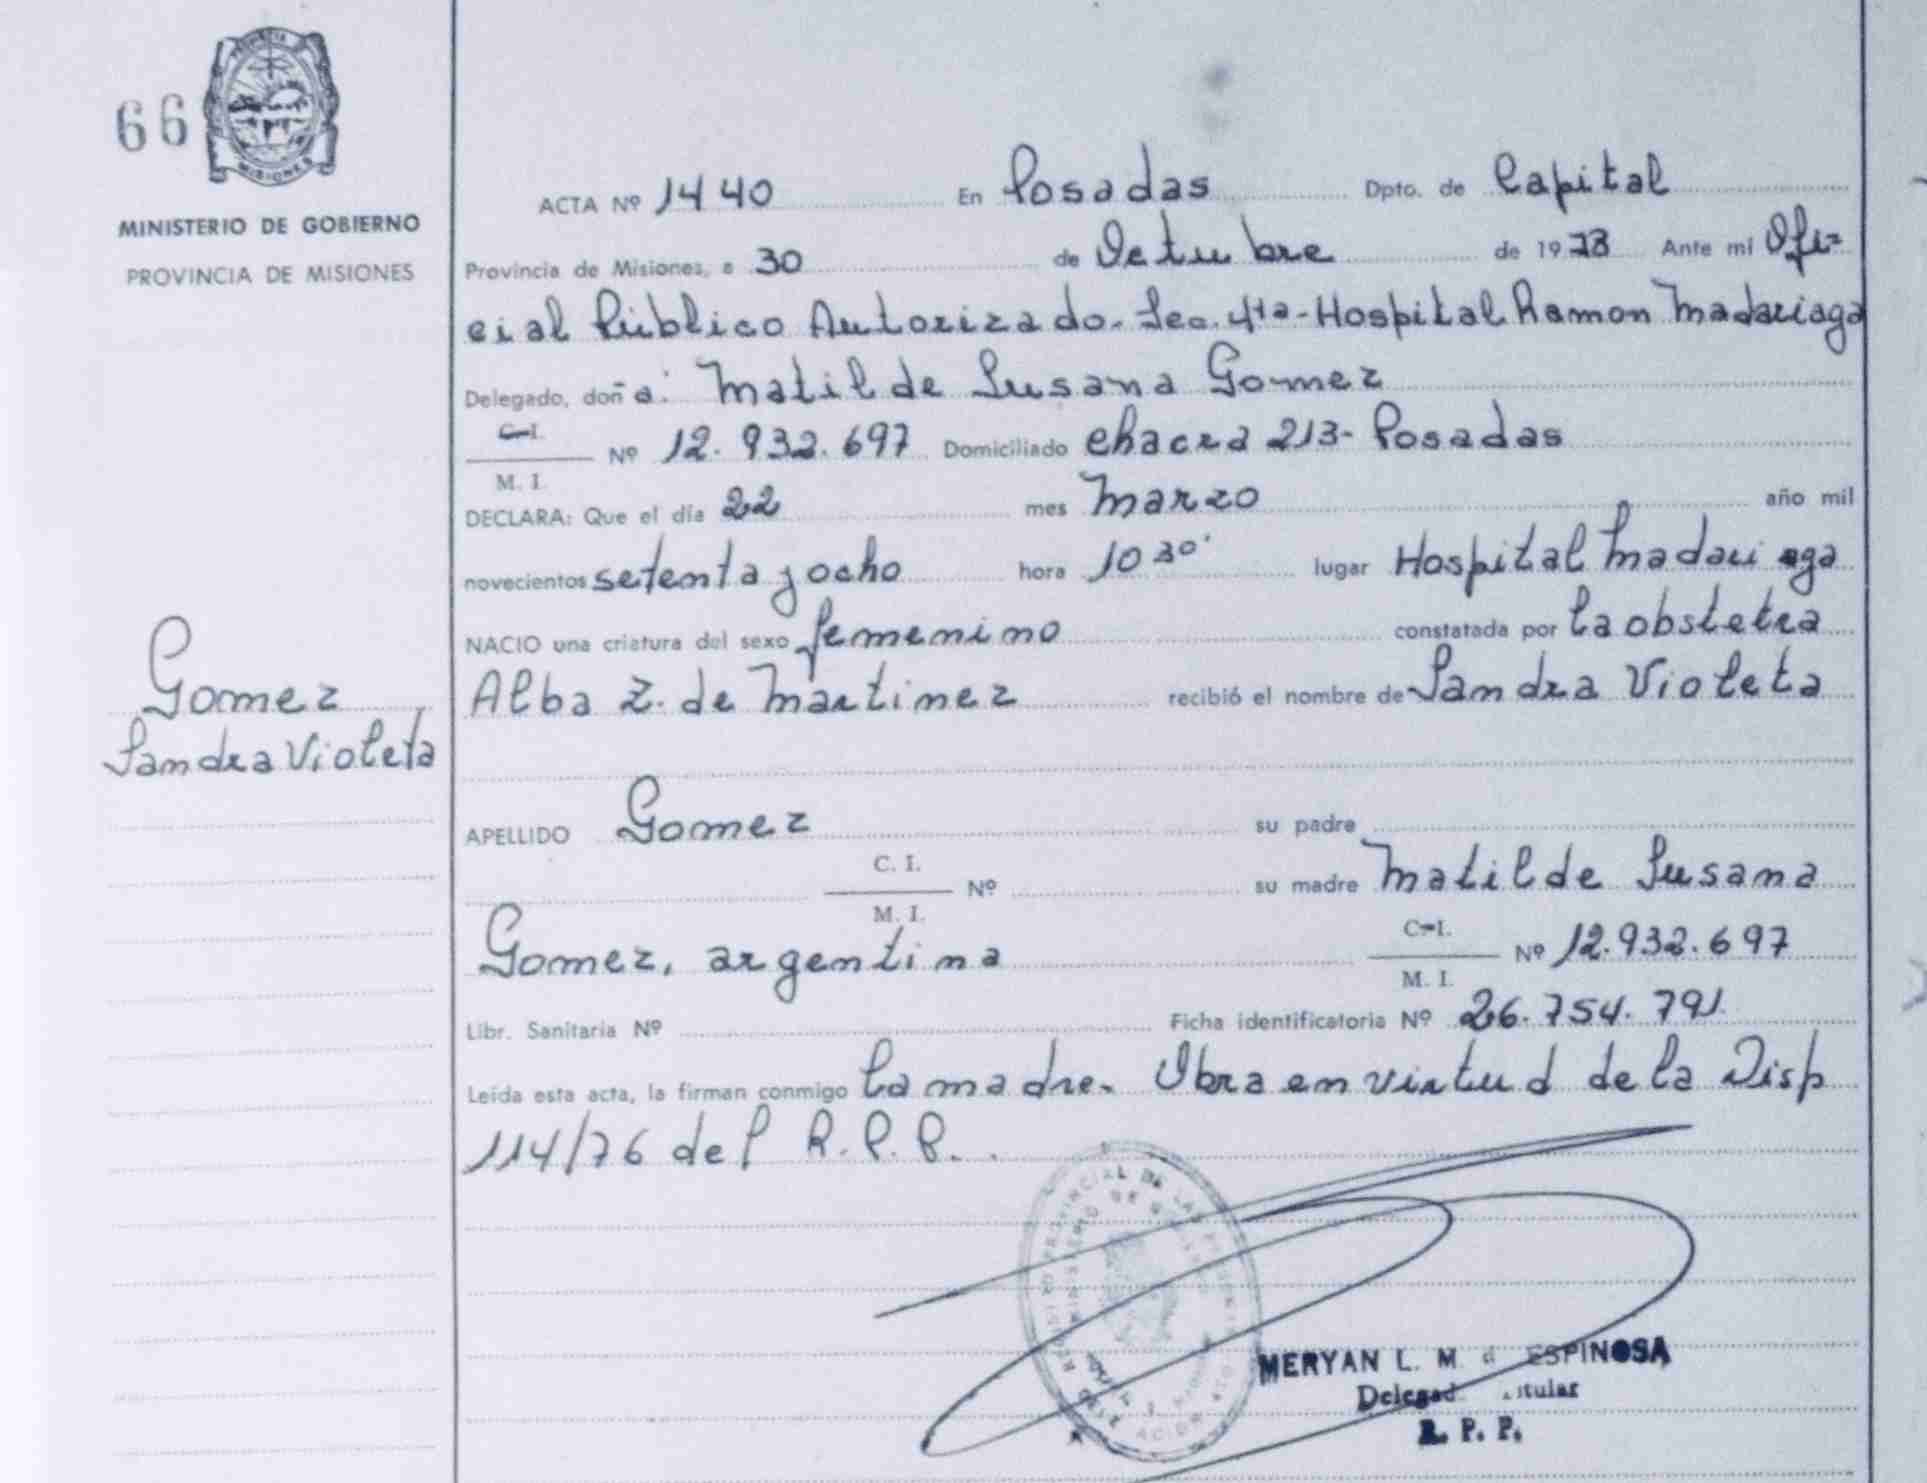 66
PROVINCIA
MISIONES
MINISTERIO DE GOBIERNO
PROVINCIA DE MISIONES
Gomez
Sandra Violeta
ACTA Nº 1440 En Posadas Dpto. de Capital
Provincia de Misiones, a 30 de Octubre de 1978 Ante mi Ofi=
cial Público Autorizado. Sec. 4ta - Hospital Ramon Madariaga
Delegado, doñ a: Matilde Susana Gomez
C.I.
M. I. Nº 12.932.697 Domiciliado chacra 213- Posadas
DECLARA: Que el día 22 mes Marzo año mil
novecientos setenta y ocho hora 10 30' lugar Hospital Madariaga
NACIO una criatura del sexo femenino constatada por la obstetra
Alba Z. de Martinez recibió el nombre de Sandra Violeta
APELLIDO Gomez su padre
C. I.
M. I. Nº su madre Matilde Susana
Gomez, argentina C.I.
M. I. Nº 12.932.697
Libr. Sanitaria Nº Ficha identificatoria Nº 26.754.791
Leída esta acta, la firman conmigo la madre. Obra en virtud de la Disp
114/76 del R.P.P..
MERYAN L. M. d ESPINOSA
R. P. P.